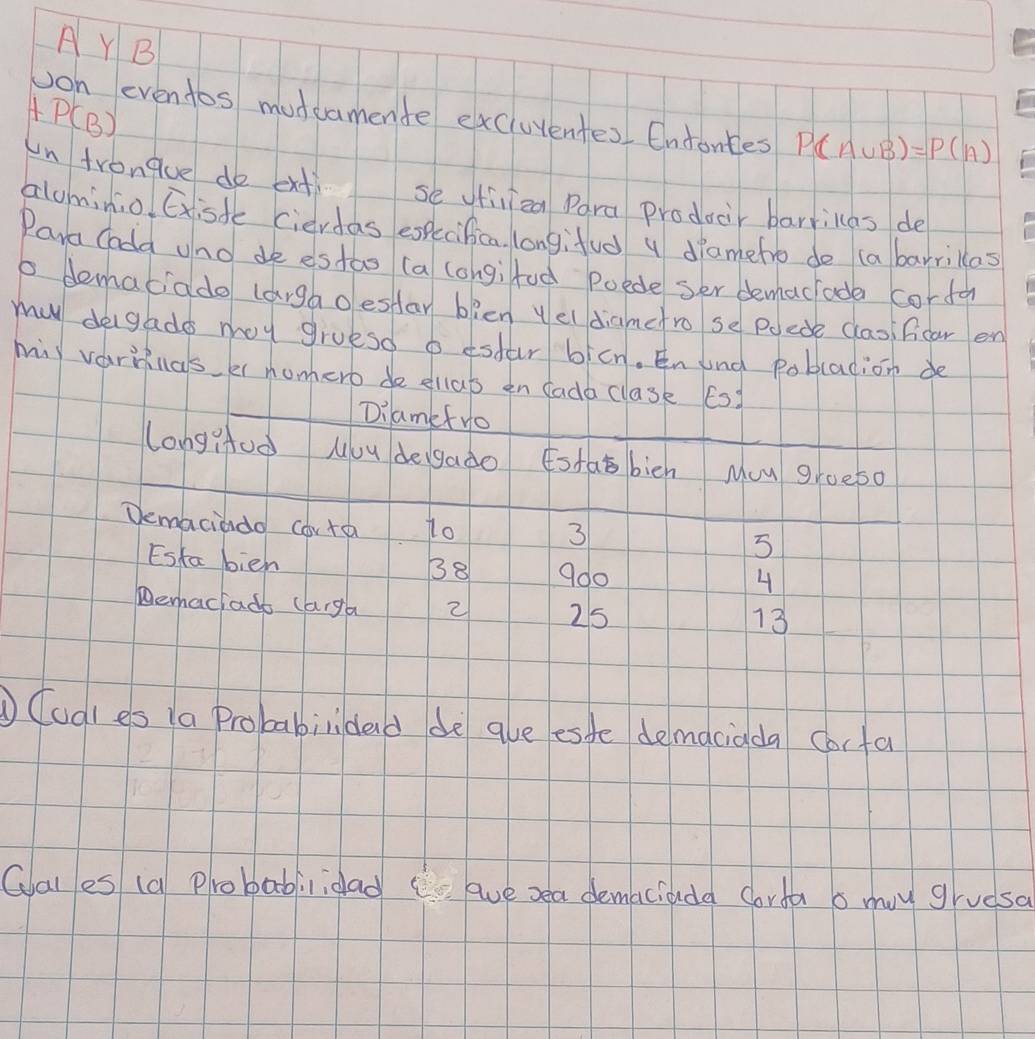 A Y B
son eventos mutuamente excluyentes. Entontes P(A∪B)=P(A)
+P(B)
un tronque de exti se utiliza Para producir barrillas de
aluminio. Existe ciertas especifica. longitud y diametro de la barrillas
Para Cada uno de estas la longitud Puede ser demaciada corta
o demaciado larga o estar bien y el diametro se puede clasificar en
muy delgado muy grueso o estar bien. En una Poblacion de
mil varrillas el numero de ellas en cada clase Es:
Diametro
Longitud Muy delgado Estas bien Muy grueso
Demaciado corta 10 3 5
Esta bien 38 900 4
Demaciado larga 2 25 13
1) Cual es la Probabilidad de que este demaciada corta
Cual es la Probabilidad que sea demaciada Corta o muy gruesa